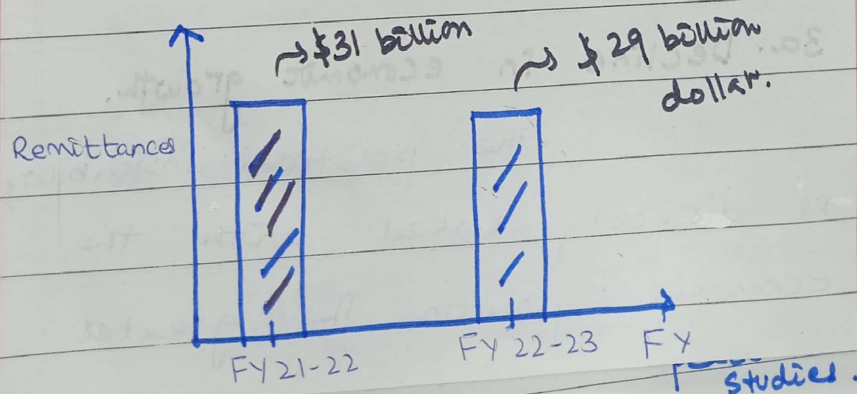 ~$31 billion
~ $ 29 billion
dollar.
Remittances
FY 21-22
FY 22-23
FY
studies.